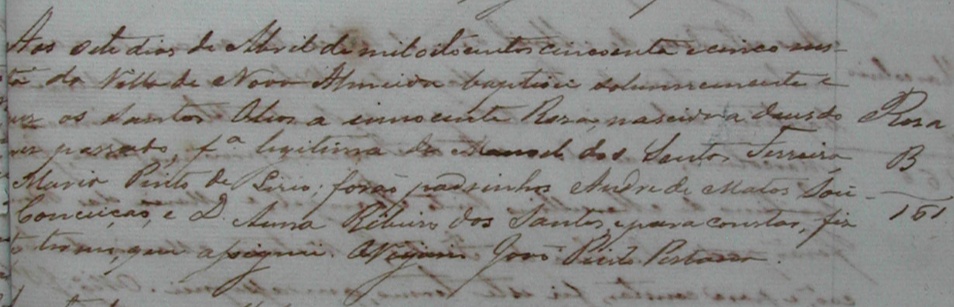 Aos sete dias de Abril de mil oitocentos cincoenta e cinco nes-
ta da Villa de Nova Almeida baptisei solemnemente e
puz os Santos Oleos a innocente Roza, nascida a dous do
mez passado, f.ª legitima de Manoel dos Santos Ferreira
Maria Pinto de Lirio; forão padrinhos Andre de Matos
Conceição, e D. Anna Ribeiro dos Santos, e para constar, fiz
termo, que assignei. O Vigario João Pinto Pestana.
Rosa
B
161